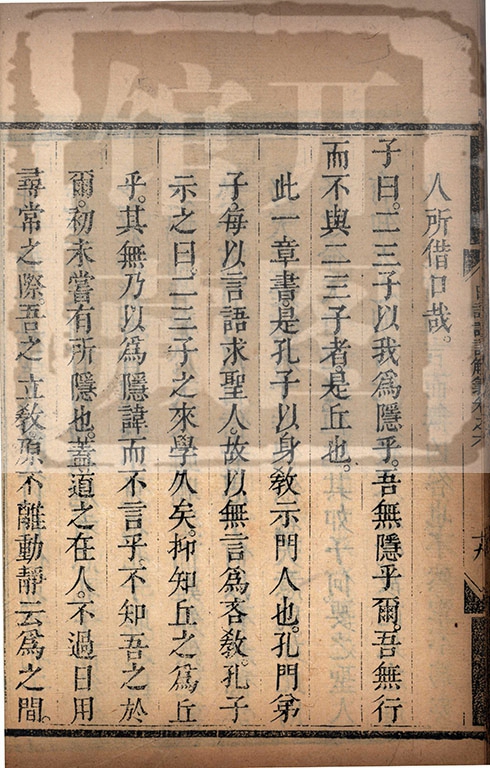 人所借口哉。
子曰。二三子以我爲隱乎。吾無隱乎爾。吾無行
而不與二三子者。是丘也。
此一章書。是孔子以身教示門人也。孔門弟
子。每以言語求聖人。故以無言爲吝教。孔子
示之曰。二三子之來學久矣。抑知丘之爲丘
乎。其無乃以爲隱諱而不言乎。不知吾之於
爾。初未嘗有所隱也。蓋道之在人。不過日用
尋常之際。吾之立教。原不離動靜云爲之間。